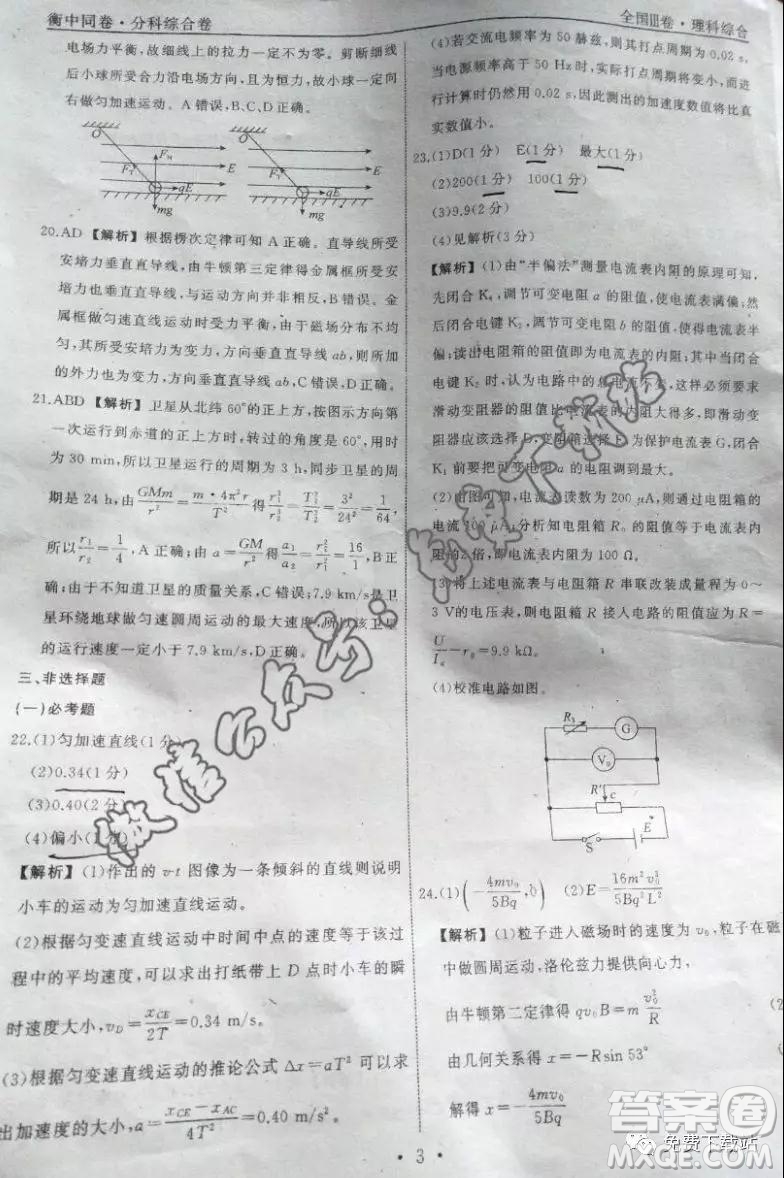 衡中同卷·分科综合卷
全国Ⅲ卷·理科综合
电场力平衡,故细线上的拉力一定不为零。剪断细线
后小球所受合力沿电场方向,且为恒力,故小球一定向
右做匀加速运动。A错误,B、C、D正确。
O FN E FT qE mg
O E FT qE mg
20.AD 【解析】根据楞次定律可知A正确。直导线所受
安培力垂直直导线,由牛顿第三定律得金属框所受安
培力垂直直导线,与运动方向并非相反,B错误。金
属框做匀速直线运动时受力平衡,由于磁场分布不均
匀,其所受安培力为变力,且垂直于直导线ab,则所加
的外力也为变力,且垂直于直导线ab,D正确。
21.ABD 【解析】卫星从北纬60°的正上方,按图示方向第
一次运行到赤道的正上方时,转过的角度是60°,用时
为30 min,所以卫星运行的周期为3 h,同步卫星的周
期是24 h,由GMm/r²=m·4π²r/T²得r₁³/r₂³=T₁²/T₂²=3²/24²=1/64,
所以r₁/r₂=1/4,A正确;由a=GM/r²得a₁/a₂=r₂²/r₁²=16/1,B正
确;由于不知道卫星的质量关系,C错误;7.9 km/s是卫
星环绕地球做匀速圆周运动的最大速度,所以该卫星
的运行速度一定小于7.9 km/s,D正确。
三、非选择题
(一)必考题
22.(1)匀加速直线(1分)
(2)0.34(1分)
(3)0.40(2分)
(4)偏小(1分)
【解析】(1)作出的v-t图像为一条倾斜的直线则说明
小车的运动为匀加速直线运动。
(2)根据匀变速直线运动中时间中点的速度等于该过
程中的平均速度,可以求出打纸带上D点时小车的瞬
时速度大小,vD=xCE/2T=0.34 m/s。
(3)根据匀变速直线运动的推论公式Δx=aT²可以求
出加速度的大小,a=(xCE-xAC)/4T²=0.40 m/s。
(4)若交流电频率为50赫兹,则其打点周期为0.02 s,
当电源频率高于50 Hz时,实际打点周期将变小,而进
行计算时仍然用0.02 s,因此测出的加速度数值将比真
实数值小。
23.(1)D(1分) E(1分) 最大(1分)
(2)200(1分) 100(1分)
(3)9.9(2分)
(4)见解析(3分)
【解析】(1)由“半偏法”测量电流表内阻的原理可知,
先闭合K₁,调节可变电阻a的阻值,使电流表满偏;然
后闭合电键K₂,调节可变电阻b的阻值,使得电流表半
偏;读出电阻箱的阻值即为电流表内阻;由于闭合电
键K₂时,认为电路中的总电流不变,这就要求
滑动变阻器的阻值比电流表的内阻大的多,即滑动变
阻器应该选择E,电阻箱选择D;为保护电流表,闭合
K₁前要把可变电阻a的电阻调到最大。
(2)由图可知,电流表读数为200 μA,则通过电阻箱的
电流100 μA;分析知电阻箱R₀的阻值等于电流表内
阻的2倍,即电流表内阻为100 Ω。
(3)将上述电流表与电阻箱R串联改装成量程为0~
3 V的电压表,则电阻箱R接入电路的阻值应为R=
U/Ig-r₀=9.9 kΩ.
(4)校准电路如图。
R₁ G
V₀
R′ c
S E
24.(1)(-4mv₀/5Bq,0) (2)E=16m²v₀³/5Bq²L²
【解析】(1)粒子进入磁场时的速度为v₀,粒子在磁场
中做圆周运动,洛伦兹力提供向心力,
由牛顿第二定律得qv₀B=m v₀²/R
由几何关系得x=-Rsin 53°
解得x=-4mv₀/5Bq
·3·
答案圈
免费下载站